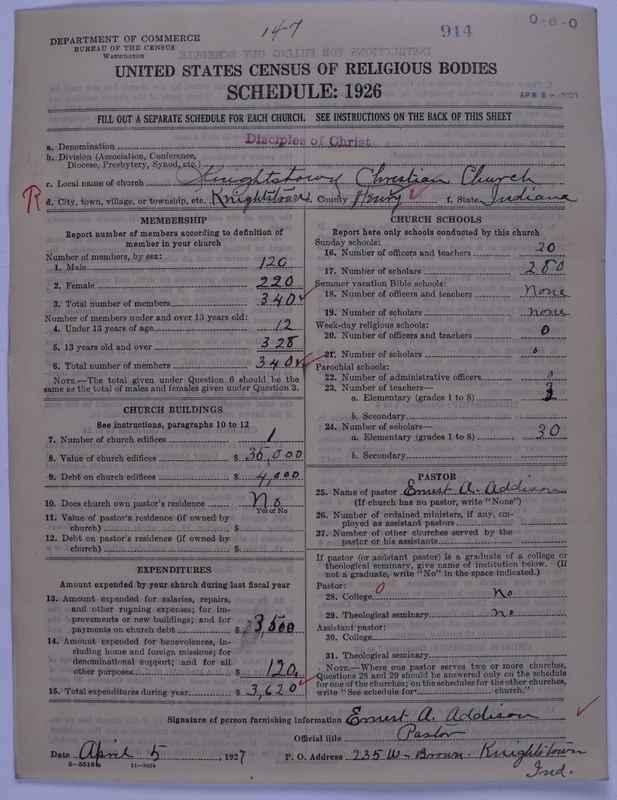 147
914
0-6-0
DEPARTMENT OF COMMERCE
BUREAU OF THE CENSUS
WASHINGTON
UNITED STATES CENSUS OF RELIGIOUS BODIES
SCHEDULE: 1926
APR 6 - 1927
FILL OUT A SEPARATE SCHEDULE FOR EACH CHURCH. SEE INSTRUCTIONS ON THE BACK OF THIS SHEET
a. Denomination Disciples of Christ
b. Division (Association, Conference, Diocese, Presbytery, Synod, etc.)
c. Local name of church Knightstown Christian Church
R d. City, town, village, or township, etc. Knightstown County Henry f. State Indiana
MEMBERSHIP
Report number of members according to definition of
member in your church
Number of members, by sex:
1. Male 120
2. Female 220
3. Total number of members 340
Number of members under and over 13 years old:
4. Under 13 years of age 12
5. 13 years old and over 328
6. Total number of members 340
NOTE.—The total given under Question 6 should be
same as the total of males and females given under Question 3.
CHURCH BUILDINGS
See instructions, paragraphs 10 to 12
7. Number of church edifices 1
8. Value of church edifices $ 35,000
9. Debt on church edifices $ 4,000
10. Does church own pastor's residence No
Yes or No
11. Value of pastor's residence (if owned by
church) $
12. Debt on pastor's residence (if owned by
church) $
EXPENDITURES
Amount expended by your church during last fiscal year
13. Amount expended for salaries, repairs,
and other running expenses; for im-
provements or new buildings; and for
payments on church debt $ 3,500
14. Amount expended for benevolences, in-
cluding home and foreign missions; for
denominational support; and for all
other purposes $ 120
15. Total expenditures during year $ 3,620
CHURCH SCHOOLS
Report here only schools conducted by this church
Sunday schools:
16. Number of officers and teachers 20
17. Number of scholars 280
Summer vacation Bible schools:
18. Number of officers and teachers None
19. Number of scholars none
Week-day religious schools:
20. Number of officers and teachers 0
21. Number of scholars 0
Parochial schools:
22. Number of administrative officers 0
23. Number of teachers—
a. Elementary (grades 1 to 8)
b. Secondary
24. Number of scholars—
a. Elementary (grades 1 to 8) 30
b. Secondary
PASTOR
25. Name of pastor Ernest A. Addison
(If church has no pastor, write "None")
26. Number of ordained ministers, if any, em-
ployed as assistant pastors
27. Number of other churches served by the
pastor or his assistants
If pastor (or assistant pastor) is a graduate of a college or
theological seminary, give name of institution below. (If
not a graduate, write "No" in the space indicated.)
Pastor:
28. College 0 No
29. Theological seminary no
Assistant pastor:
30. College
31. Theological seminary
NOTE.—Where one pastor serves two or more churches,
Questions 28 and 29 should be answered only on the schedule
for one of the churches; on the schedules for the other churches,
write "See schedule for church."
Signature of person furnishing information Ernest A. Addison
Official title Pastor
Date April 5, 1927 P. O. Address 235 W- Brown. Knightstown
Ind.